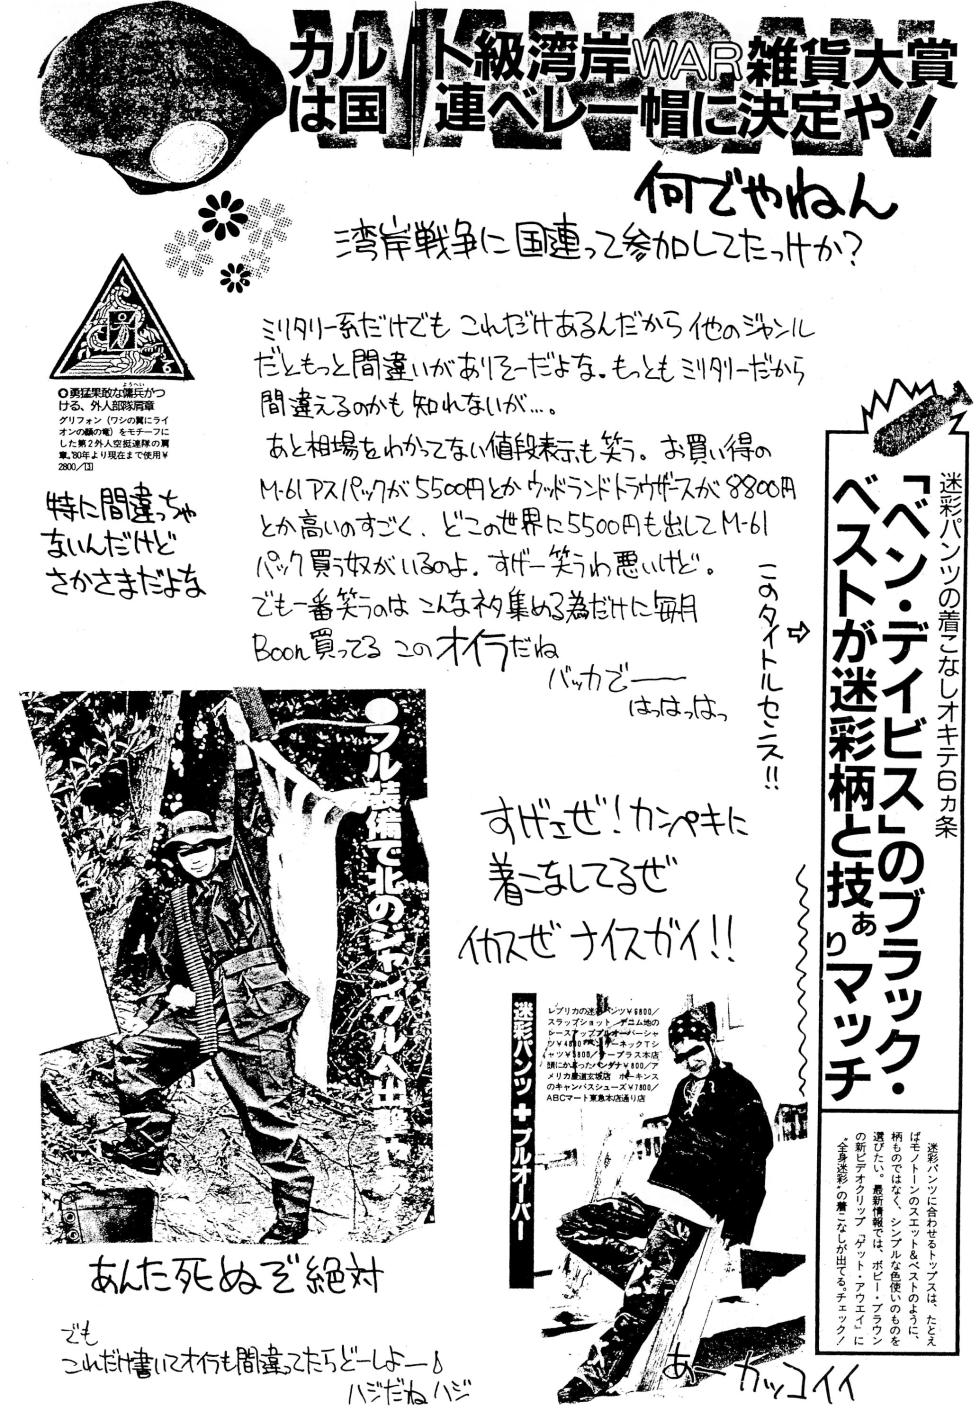 WANGAN
カルト級湾岸WAR雑貨大賞
は国連ベレー帽に決定や!
何でやねん
湾岸戦争に国連って参加してたっけか?
ミリタリー系だけでも これだけあるんだから 他のジャンル
だともっと間違いがありそーだよな。もっともミリタリーだから
間違えるのかも知れないが…。
あと相場をわかってない値段表示も笑う。お買い得の
M-61アスパックが5500円とかウッドランドトラウザースが8800円
とか高いのすごく、どこの世界に5500円も出してM-61
パック買う奴がいるのよ。すげー笑うわ悪いけど。
でも一番笑うのは こんなネタ集める為だけに毎月
Boon買ってる このオイラだね
バッカでー
はっはっはっ
●勇猛果敢な傭兵がつ
ようへい
ける、外人部隊肩章
グリフォン(ワシの翼にライ
オンの顔の竜)をモチーフに
した第2外人空挺連隊の肩
章。'80年より現在まで使用¥
2800/[3]
特に間違っちゃ
ないんだけど
さかさまだよな
このタイトルセンス!!
⇨
迷彩パンツの着こなしオキテ6ヵ条
「ベン・デイビス」のブラック・
ベストが迷彩柄と技ぁりマッチ
迷彩パンツに合わせるトップスは、たとえ
ばモノトーンのスエット&ベストのように、
柄ものではなく、シンプルな色使いのものを
選びたい。最新情報では、ボビー・ブラウン
の新ビデオクリップ『ゲット・アウエイ』に
"全身迷彩"の着こなしが出てる。チェック!
●フル装備で北のジャングルへ出撃
すげェぜ!カンペキに
着こなしてるぜ
イカスぜ ナイスガイ!!
あんた死ぬぞ絶対
迷彩パンツ+プルオーバー
レプリカの迷彩パンツ¥6800/
スラップショット デニム地の
レースアッププルオーバーシャ
ツ¥4800 ヘンリーネックTシ
ャツ¥3800/サープラス本店
頭にかぶったバンダナ¥800/ア
メリカ屋道玄坂店 ホーキンス
のキャンバスシューズ¥7800/
ABCマート東急本店通り店
あーカッコイイ
でも
これだけ書いてオイラも間違ってたらどーしよー♪
ハジだね ハジ